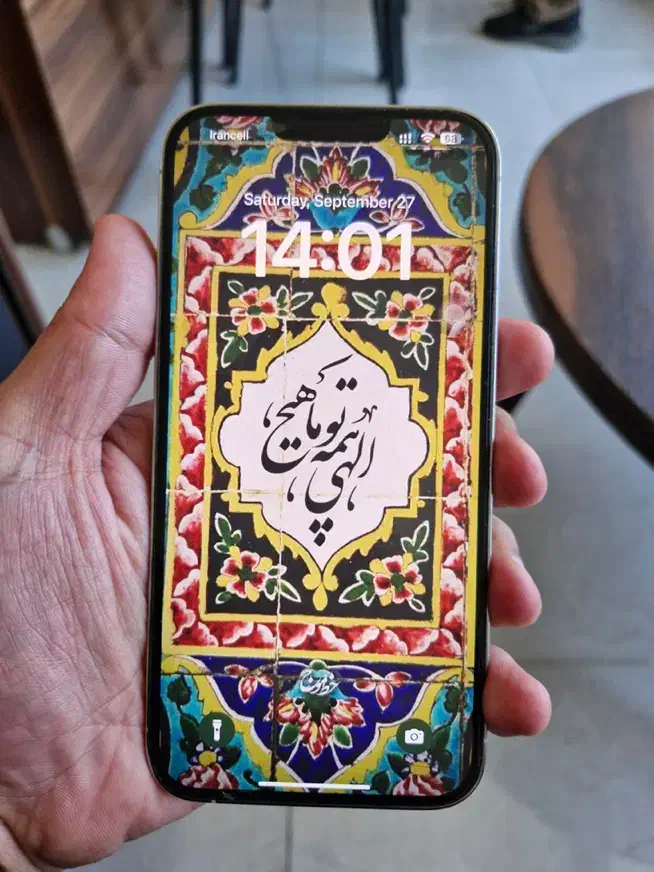 Irancell
68
Saturday, September 27
14:01
الهی همه تو ما هیچ